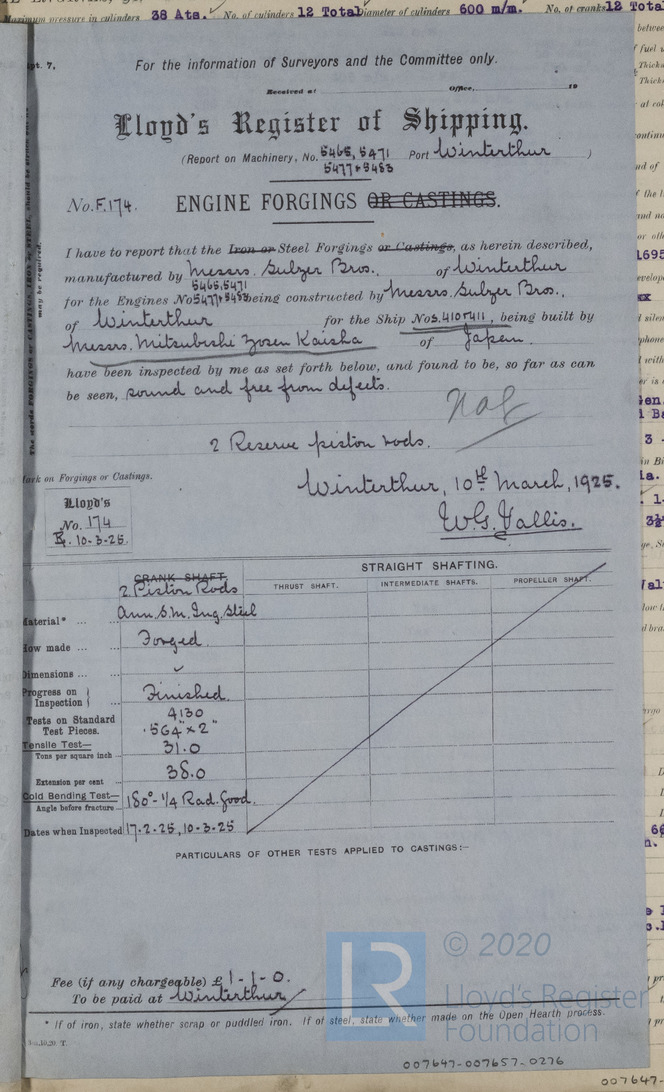 Maximum pressure in cylinders 38 Ats. No. of cylinders 12 Total Diameter of cylinders 600 m/m. No. of cranks 12 Total
pt. 7,
For the information of Surveyors and the Committee only.
Received at Office, 19
Lloyd's Register of Shipping.
(Report on Machinery, No. 5465, 5471 Port Winterthur )
5477+5483
No. F.174. ENGINE FORGINGS OR CASTINGS.
I have to report that the Iron or Steel Forgings or Castings, as herein described,
manufactured by Messrs. Sulzer Bros., of Winterthur
5465,5471
for the Engines No 5477+5483 being constructed by Messrs. Sulzer Bros.,
of Winterthur for the Ship Nos. 410+411, being built by
Messrs. Mitsubishi Zosen Kaisha of Japan.
have been inspected by me as set forth below, and found to be, so far as can
be seen, sound and free from defects.
2 Reserve piston rods.
ark on Forgings or Castings.
Winterthur, 10th March, 1925.
Lloyd's
No. 174
10-3-25.
W.G. Vallis.
STRAIGHT SHAFTING.
CRANK SHAFT.
2 Piston Rods
THRUST SHAFT. INTERMEDIATE SHAFTS. PROPELLER SHAFT.
Material* ... Ann. S.M. Ing. Steel
How made ... Forged.
Dimensions ...
Progress on Inspection ... Finished.
Tests on Standard Test Pieces. 4130
.564" x 2"
Tensile Test— 31.0
Tons per square inch ...
Extension per cent ... 38.0
Cold Bending Test— 180°-1/4 Rad. Good.
Angle before fracture ...
Dates when Inspected 17-2-25, 10-3-25
PARTICULARS OF OTHER TESTS APPLIED TO CASTINGS:—
Fee (if any chargeable) £1-1-0.
To be paid at Winterthur
* If of iron, state whether scrap or puddled iron. If of steel, state whether made on the Open Hearth process.
LR © 2020
Lloyd's Register
Foundation
007647-007657-0276
007647-